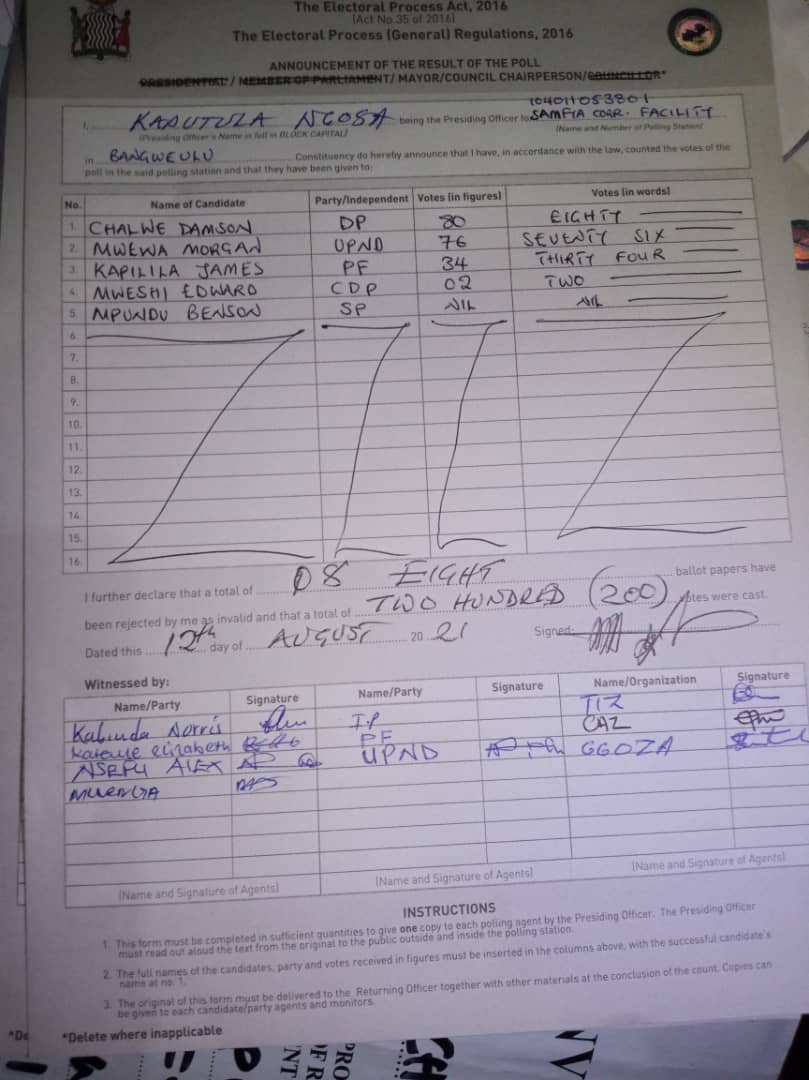 The Electoral Process Act, 2016
(Act No.35 of 2016)
The Electoral Process (General) Regulations, 2016
ANNOUNCEMENT OF THE RESULT OF THE POLL
PRESIDENTIAL / MEMBER OF PARLIAMENT/ MAYOR/COUNCIL CHAIRPERSON/COUNCILLOR*
104011053801
I, KABUTULA NGOSA being the Presiding Officer for SAMFYA CORR. FACILITY
(Presiding Officer's Name in full in BLOCK CAPITAL) (Name and Number of Polling Station)
in BANGWEULU Constituency do hereby announce that I have, in accordance with the law, counted the votes of the
poll in the said polling station and that they have been given to:
No. Name of Candidate Party/Independent Votes (in figures) Votes (in words)
1. CHALWE DAMSON DP 80 EIGHTY
2. MWEWA MORGAN UPND 76 SEVENTY SIX
3. KAPILILA JAMES PF 34 THIRTY FOUR
4. MWESHI EDWARD CDP 02 TWO
5. MPUNDU BENSON SP NIL NIL
6.
7.
8.
9.
10.
11.
12.
13.
14.
15.
16.
I further declare that a total of 08 EIGHT ballot papers have
been rejected by me as invalid and that a total of TWO HUNDRED (200) votes were cast.
Dated this 12th day of AUGUST 2021 Signed:
Witnessed by:
Name/Party Signature Name/Party Signature Name/Organization Signature
Kabunda Norris TIZ
Kataule elizabeth PF CAZ
NSEFU ALEX UPND GGOZA
MWENGA
(Name and Signature of Agents) (Name and Signature of Agents) (Name and Signature of Agents)
INSTRUCTIONS
1. This form must be completed in sufficient quantities to give one copy to each polling agent by the Presiding Officer. The Presiding Officer
must read out aloud the text from the original to the public outside and inside the polling station.
2. The full names of the candidates, party and votes received in figures must be inserted in the columns above, with the successful candidate's
name at no. 1.
3. The original of this form must be delivered to the Returning Officer together with other materials at the conclusion of the count. Copies can
be given to each candidate/party agents and monitors.
*Delete where inapplicable